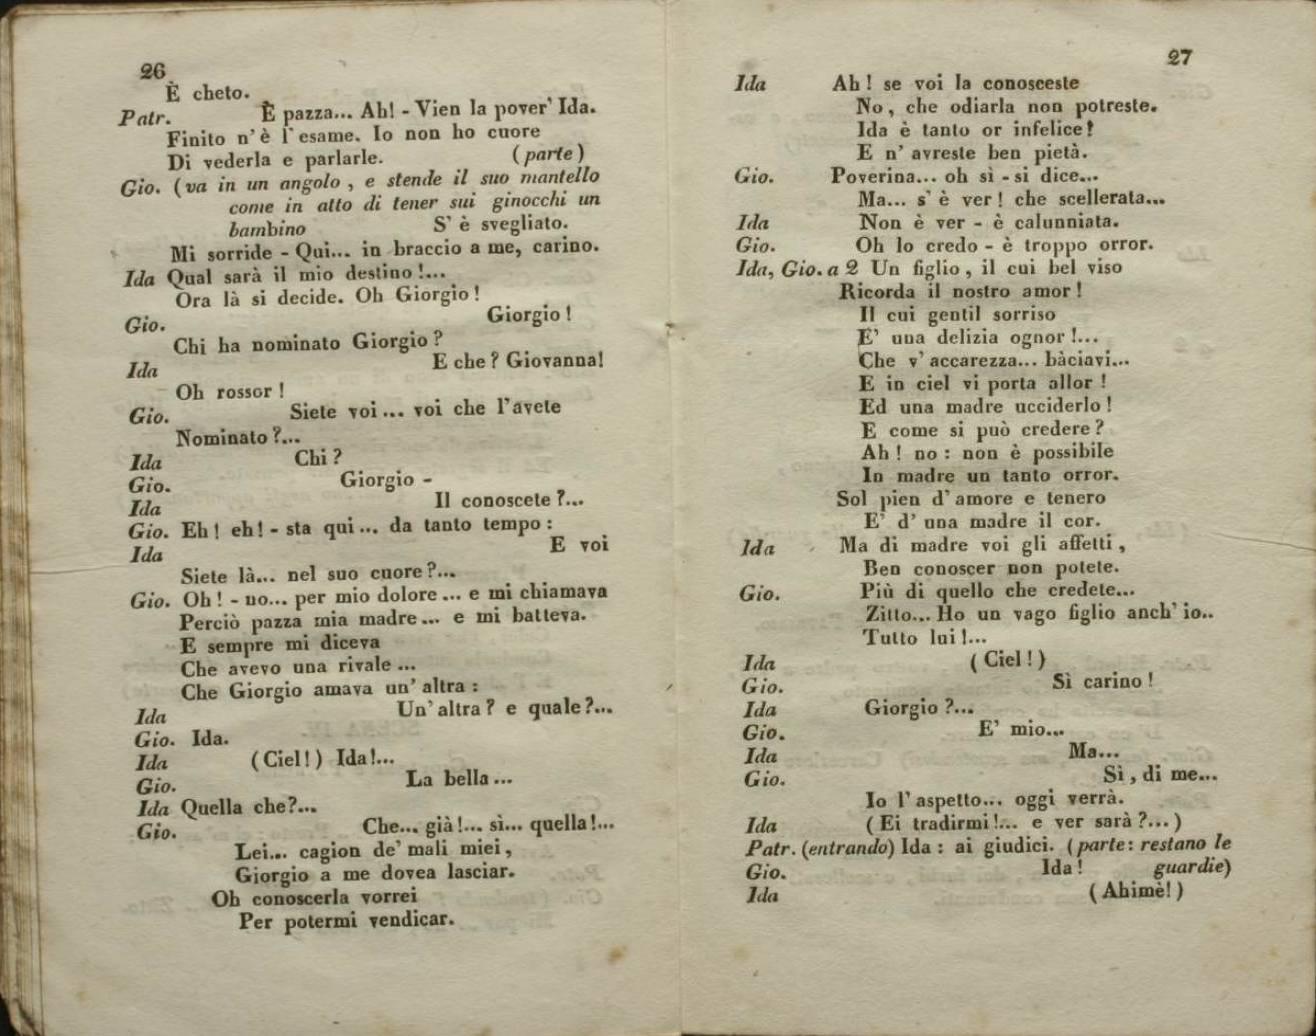 26
È cheto.
Patr. È pazza... Ah! - Vien la pover' Ida.
Finito n'è l'esame. Io non ho cuore
Di vederla e parlarle. (parte)
Gio. (va in un angolo, e stende il suo mantello
come in atto di tener sui ginocchi un
bambino S' è svegliato.
Mi sorride - Qui... in braccio a me, carino.
Ida Qual sarà il mio destino!...
Ora là si decide. Oh Giorgio!
Gio. Giorgio!
Chi ha nominato Giorgio?
Ida E che? Giovanna!
Oh rossor!
Gio. Siete voi... voi che l'avete
Nominato?...
Ida Chi?
Gio. Giorgio -
Ida Il conoscete?...
Gio. Eh! eh! - sta qui... da tanto tempo:
Ida E voi
Siete là... nel suo cuore?...
Gio. Oh! - no... per mio dolore... e mi chiamava
Perciò pazza mia madre... e mi batteva.
E sempre mi diceva
Che avevo una rivale...
Che Giorgio amava un' altra:
Ida Un' altra? e quale?...
Gio. Ida.
Ida (Ciel!) Ida!...
Gio. La bella...
Ida Quella che?...
Gio. Che... già!... sì... quella!...
Lei... cagion de' mali miei,
Giorgio a me dovea lasciar.
Oh conoscerla vorrei
Per potermi vendicar.
27
Ida Ah! se voi la conosceste
No, che odiarla non potreste.
Ida è tanto or infelice!
E n' avreste ben pietà.
Gio. Poverina... oh sì - si dice...
Ma... s' è ver! che scellerata...
Ida Non è ver - è calunniata.
Gio. Oh lo credo - è troppo orror.
Ida, Gio. a 2 Un figlio, il cui bel viso
Ricorda il nostro amor!
Il cui gentil sorriso
E' una delizia ognor!...
Che v' accarezza... bàciavi...
E in ciel vi porta allor!
Ed una madre ucciderlo!
E come si può credere?
Ah! no: non è possibile
In madre un tanto orror.
Sol pien d' amore e tenero
E' d' una madre il cor.
Ida Ma di madre voi gli affetti,
Ben conoscer non potete.
Gio. Più di quello che credete...
Zitto... Ho un vago figlio anch' io..
Tutto lui!...
Ida (Ciel!)
Gio. Sì carino!
Ida Giorgio?...
Gio. E' mio...
Ida Ma...
Gio. Sì, di me...
Io l' aspetto... oggi verrà.
Ida (Ei tradirmi!... e ver sarà?...)
Patr. (entrando) Ida: ai giudici. (parte: restano le
Gio. Ida! guardie)
Ida (Ahimè!)